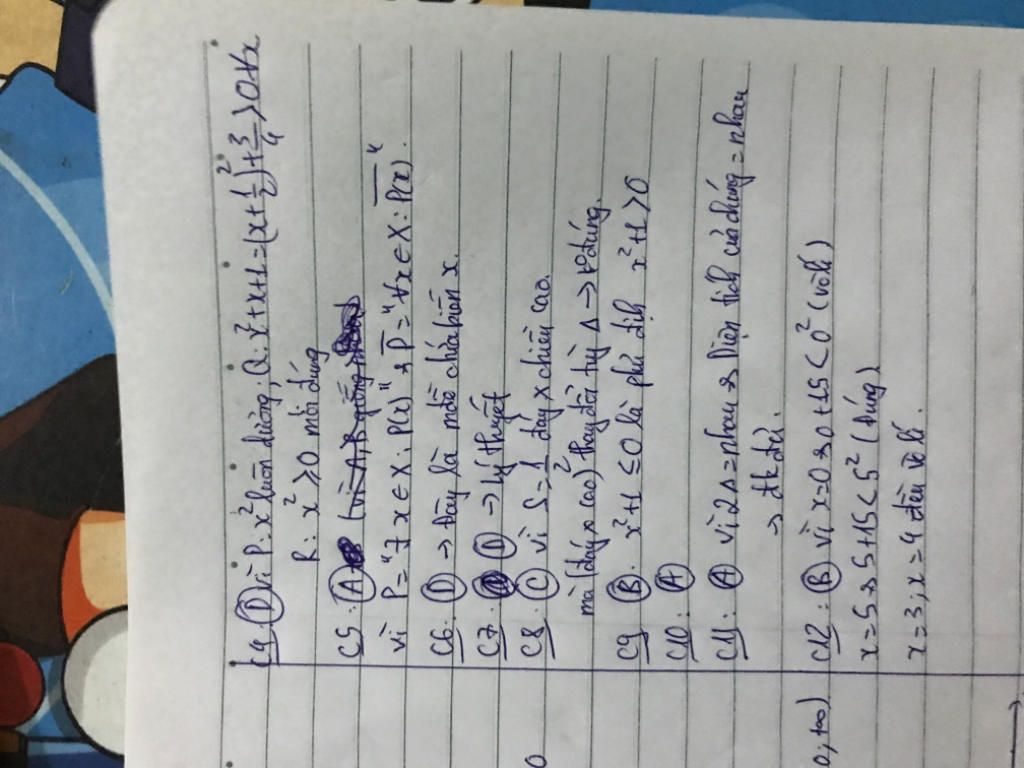 C4: D vì P: x² luôn dương; Q: x²+x+1=(x+1/2)²+3/4 >0 ∀x
R: x² ≥ 0 mới đúng
C5: A
vì P = "∃ x ∈ X, P(x)" → P̅ = "∀x ∈ X: P̅(̅x̅)̅"
C6: D → Đây là mđ chứa biến x.
C7: D → Lý thuyết
C8: C vì S = 1/2 đáy x chiều cao
mà (đáy x cao) thay đổi tuỳ Δ → đúng.
C9: B. x²+1 ≤ 0 là phủ định x²+1>0
C10: A
C11: A vì 2Δ = nhau → Diện tích của chúng = nhau
→ đk đủ.
C12: B vì x=0 → 0+15 < 0² (vô lí)
x=5 → 5+15 < 5² (đúng)
x=3; x=4 đều vô lí.
0
0; +∞)